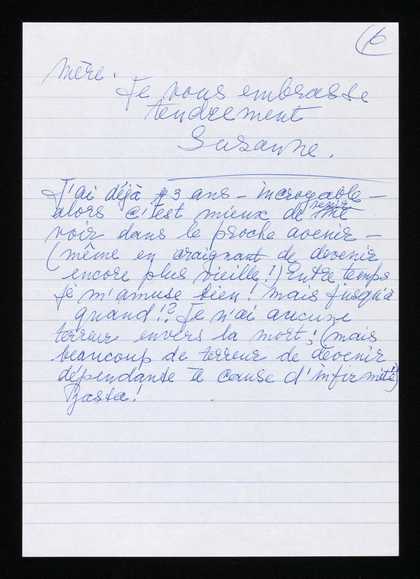 6
Mère.
Je vous embrasse
tendrement
Susanne.
J'ai déjà 73 ans – incroyable –
alors c'est mieux de me
revoir
voir dans le proche avenir –
(même en craignant de devenir
encore plus vieille!) Entre temps
je m'amuse bien! mais jusqu'à
quand!? Je n'ai aucune
terreur envers la mort! (mais
beaucoup de terreur de devenir
dépendante à cause d'infirmité)
Basta!